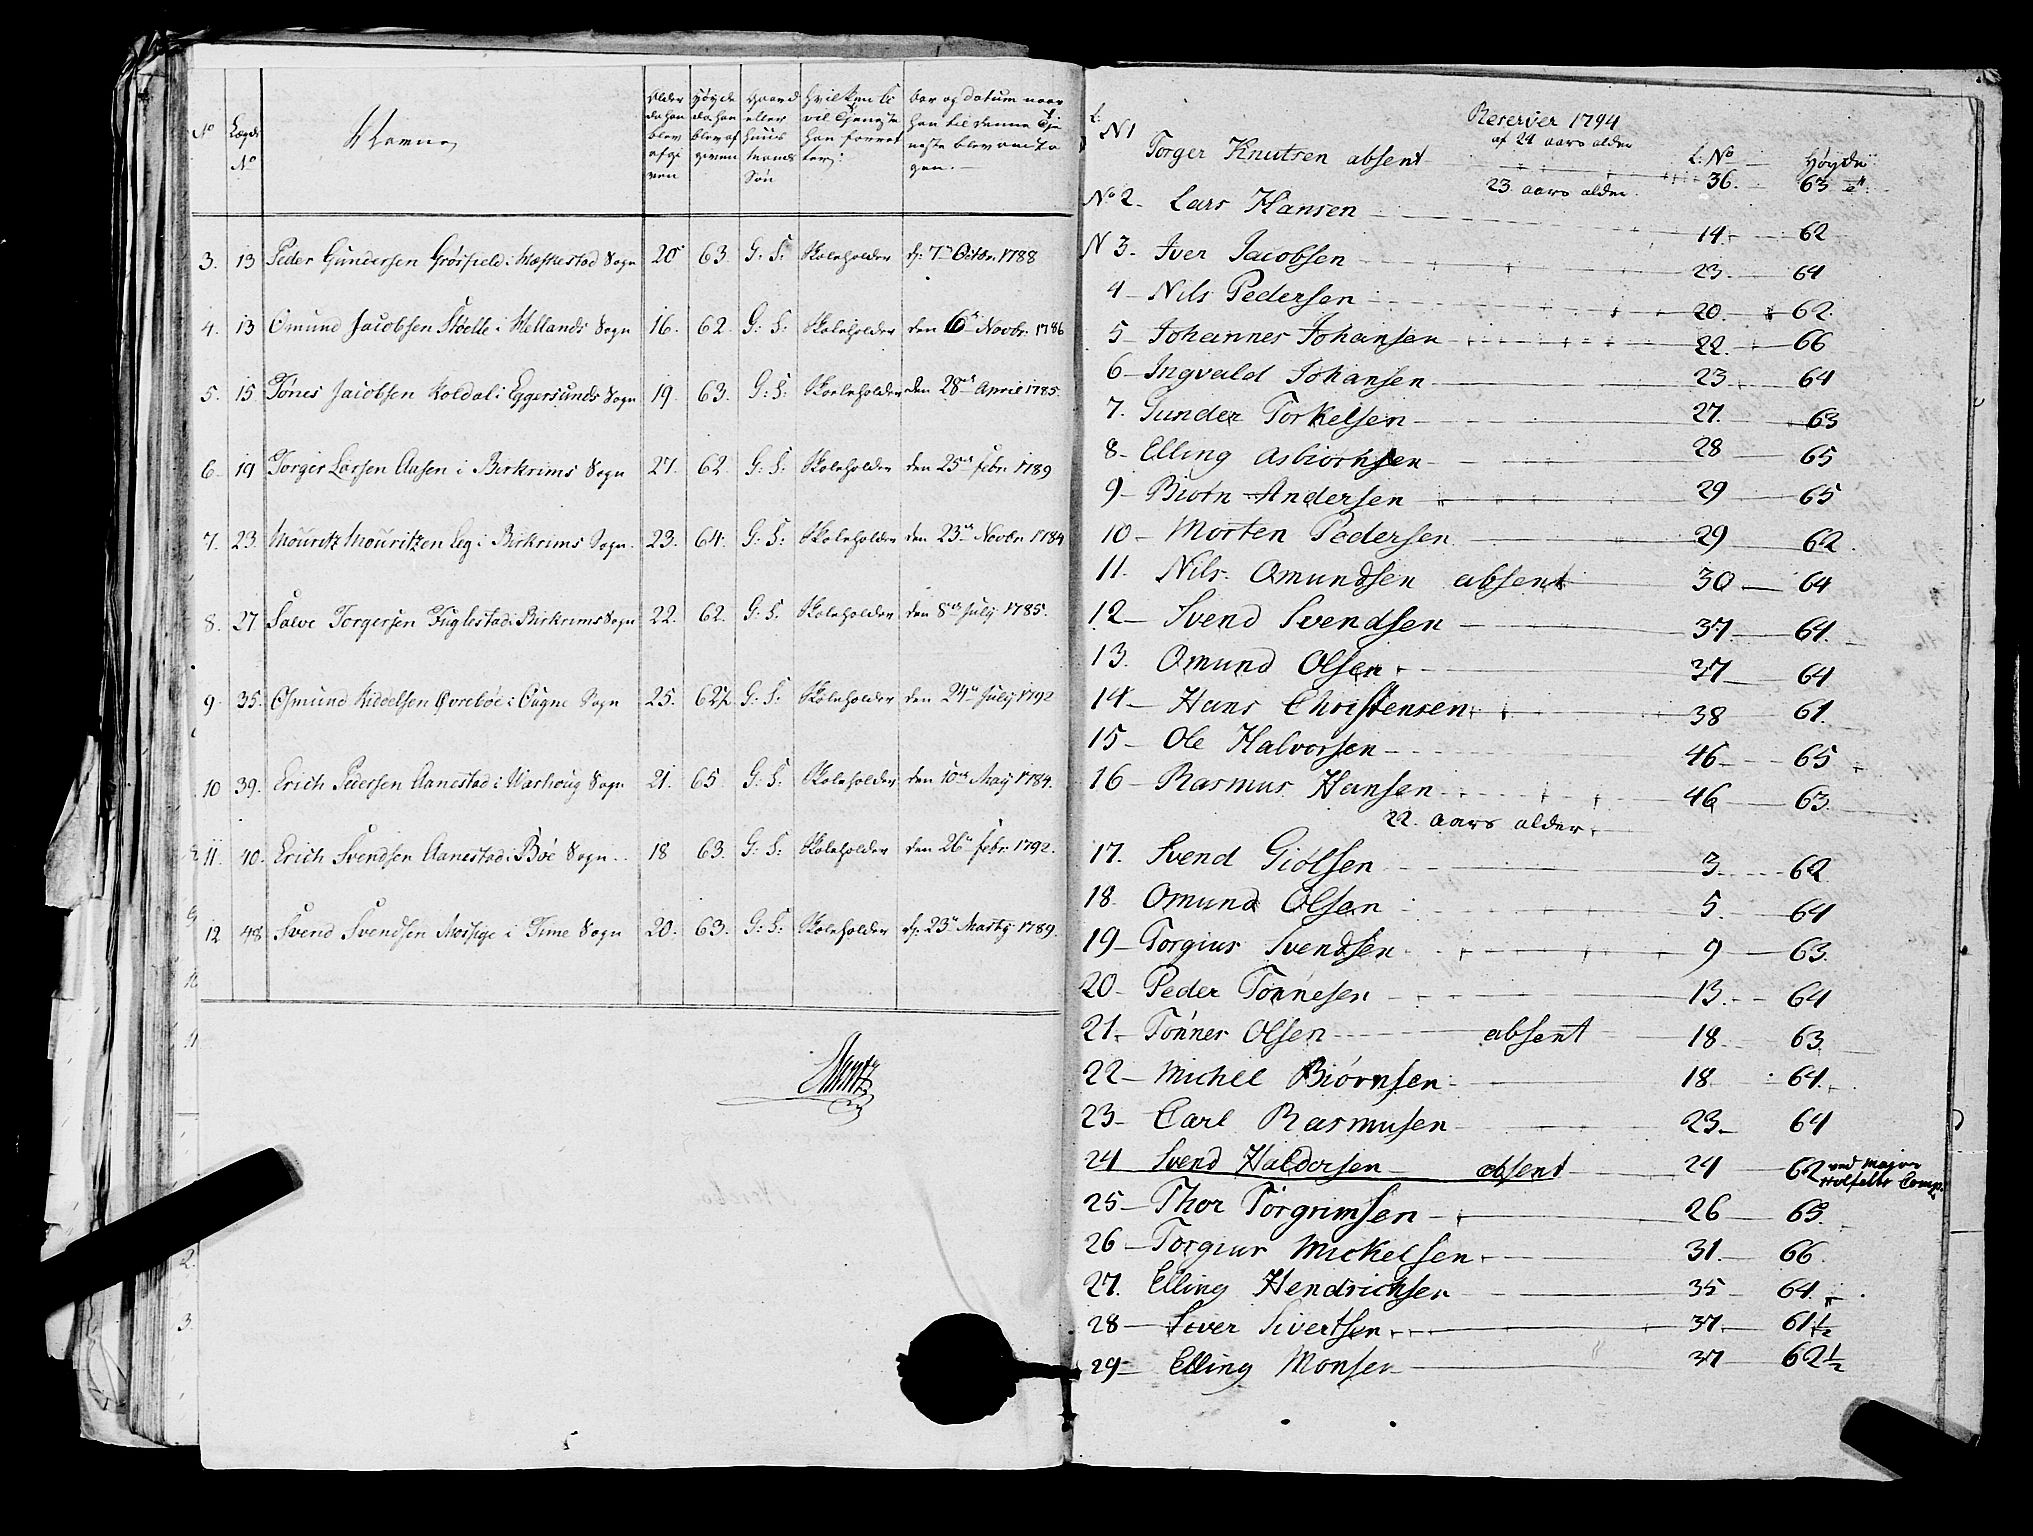 No
Lægds No
Navne
Alder da han blev afgi ven
Høyde da han blev af given
Gaard eller Huus mands Søn
Hvilken Ci vil Tjeneste han forret ter
Aar og Datum naar han til denne Tje neste blev anta gen.
3. 13 Peder Gundersen Grøsfield i Hæskestad Sogn 20 63. G: S: Skoleholder d: 7de Octbr. 1788
4. 13 Omund Jacobsen Støelle i Hellands Sogn 16. 62. G: S: Skoleholder den 6te Novbr. 1786
5. 15 Tønes Jacobsen Koldal i Eggersunds Sogn 19. 63. G: S: Skoleholder den 28de April 1785
6. 19 Torger Larsen Aasen i Birkrims Sogn 27. 62. G: S: Skoleholder den 25de febr. 1789
7. 23 Mouritz Mouritzen Eeg i Birkrims Sogn. 23. 64. G: S: Skoleholder den 23de Novbr. 1784
8. 27 Salve Torgersen Fuglestad i Birkrims Sogn 22. 62. G: S. Skoleholder den 8de July 1785.
9. 35. Osmund Kiddelsen Øvrebøe i Ougne Sogn 25. 62½ G: S. Skoleholder den 24de July 1792
10 39. Erich Pedersen Aanestad i Warhoug Sogn 21. 65 G: S: Skoleholder den 10de May 1784.
11. 40. Erich Svendsen Aanestad i Bøe Sogn 18 63. G: S: Skoleholder den 26de febr. 1792.
12 48 Svend Svendsen Mossige i Time Sogn 20. 63. G: S: Skoleholder d: 23de Marty 1789.
Reserver 1794
af 24 aars alder
L: No Høyde
N 1 Torger Knutsen absent 36. 63
23 aars alder.
No 2. Lars Hansen 14. 62
N 3. Iver Jacobsen 23. 64
4 Nils Pedersen 20. 62.
5 Johannes Johansen 22. 66
6 Ingvald Johansen 23. 64
7. Gunder Torkelsen 27. 63
8 Elling Asbiørnsen 28 65
9 Biørn Andersen 29 65
10 Morten Pedersen 29 62.
11. Nils Omundsen absent 30 64
12 Svend Svendsen 37. 64.
13. Omund Olsen 37 64
14 Hans Christensen 38 61.
15 Ole Halvorsen 46 65
16 Rasmus Hansen 46 63.
22. aars alder
17. Svend Giølsen 3. 62
18. Omund Olsen 5. 64
19 Torgius Svendsen 9 63.
20 Peder Tønnesen 13. 64
21. Tønnes Olsen absent 18. 63.
22 Michel Biørnsen 18. 64.
23 Carl Rasmusen 23 64
24 Svend Haldorsen absent 24 62 ved Major
Comp.
25 Thor Torgrimsen 26 63.
26 Torgius Mickelsen 31. 66.
27. Elling Hendrichsen 35 64.
28 Siver Sivertsen 37. 61½
29 Elling Monsen 37 62½